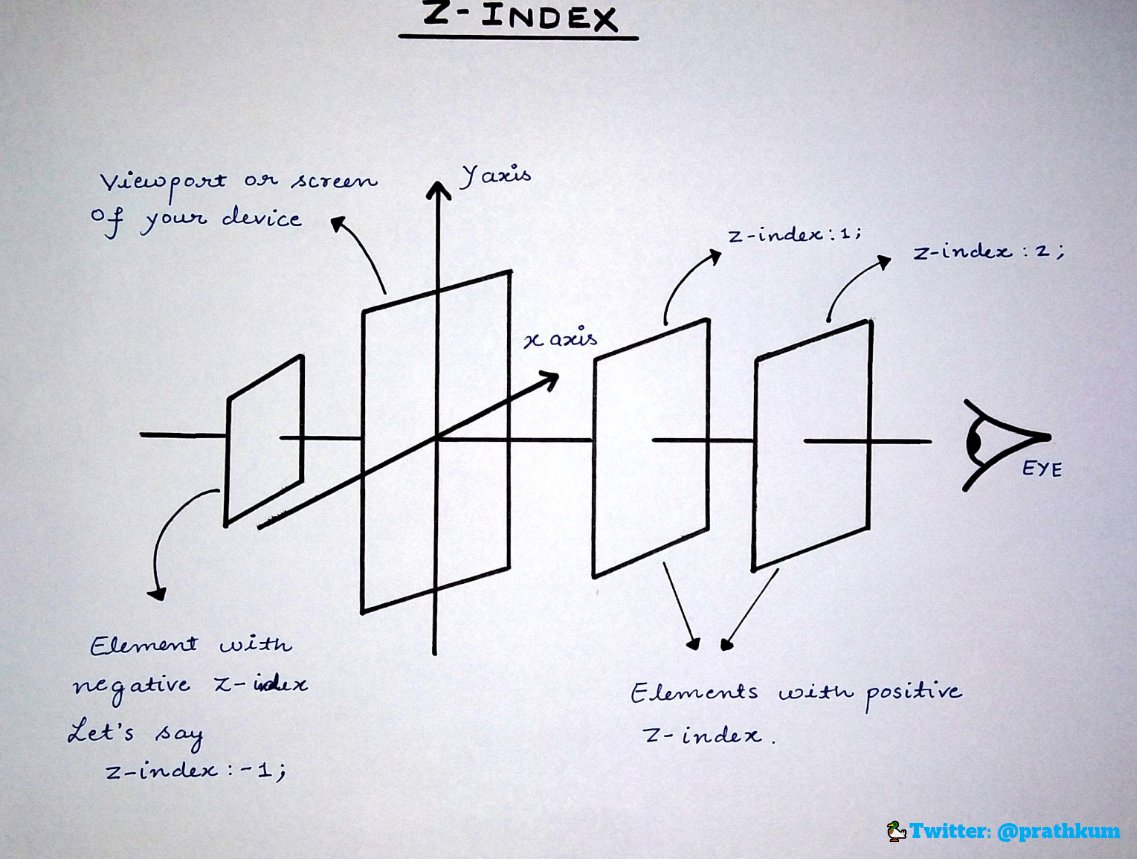 Z-INDEX
Viewport or screen
of your device
y axis
z-index:1;
z-index:2;
x axis
EYE
Element with
negative z-index
Let's say
z-index:-1;
Elements with positive
z-index.
Twitter: @prathkum